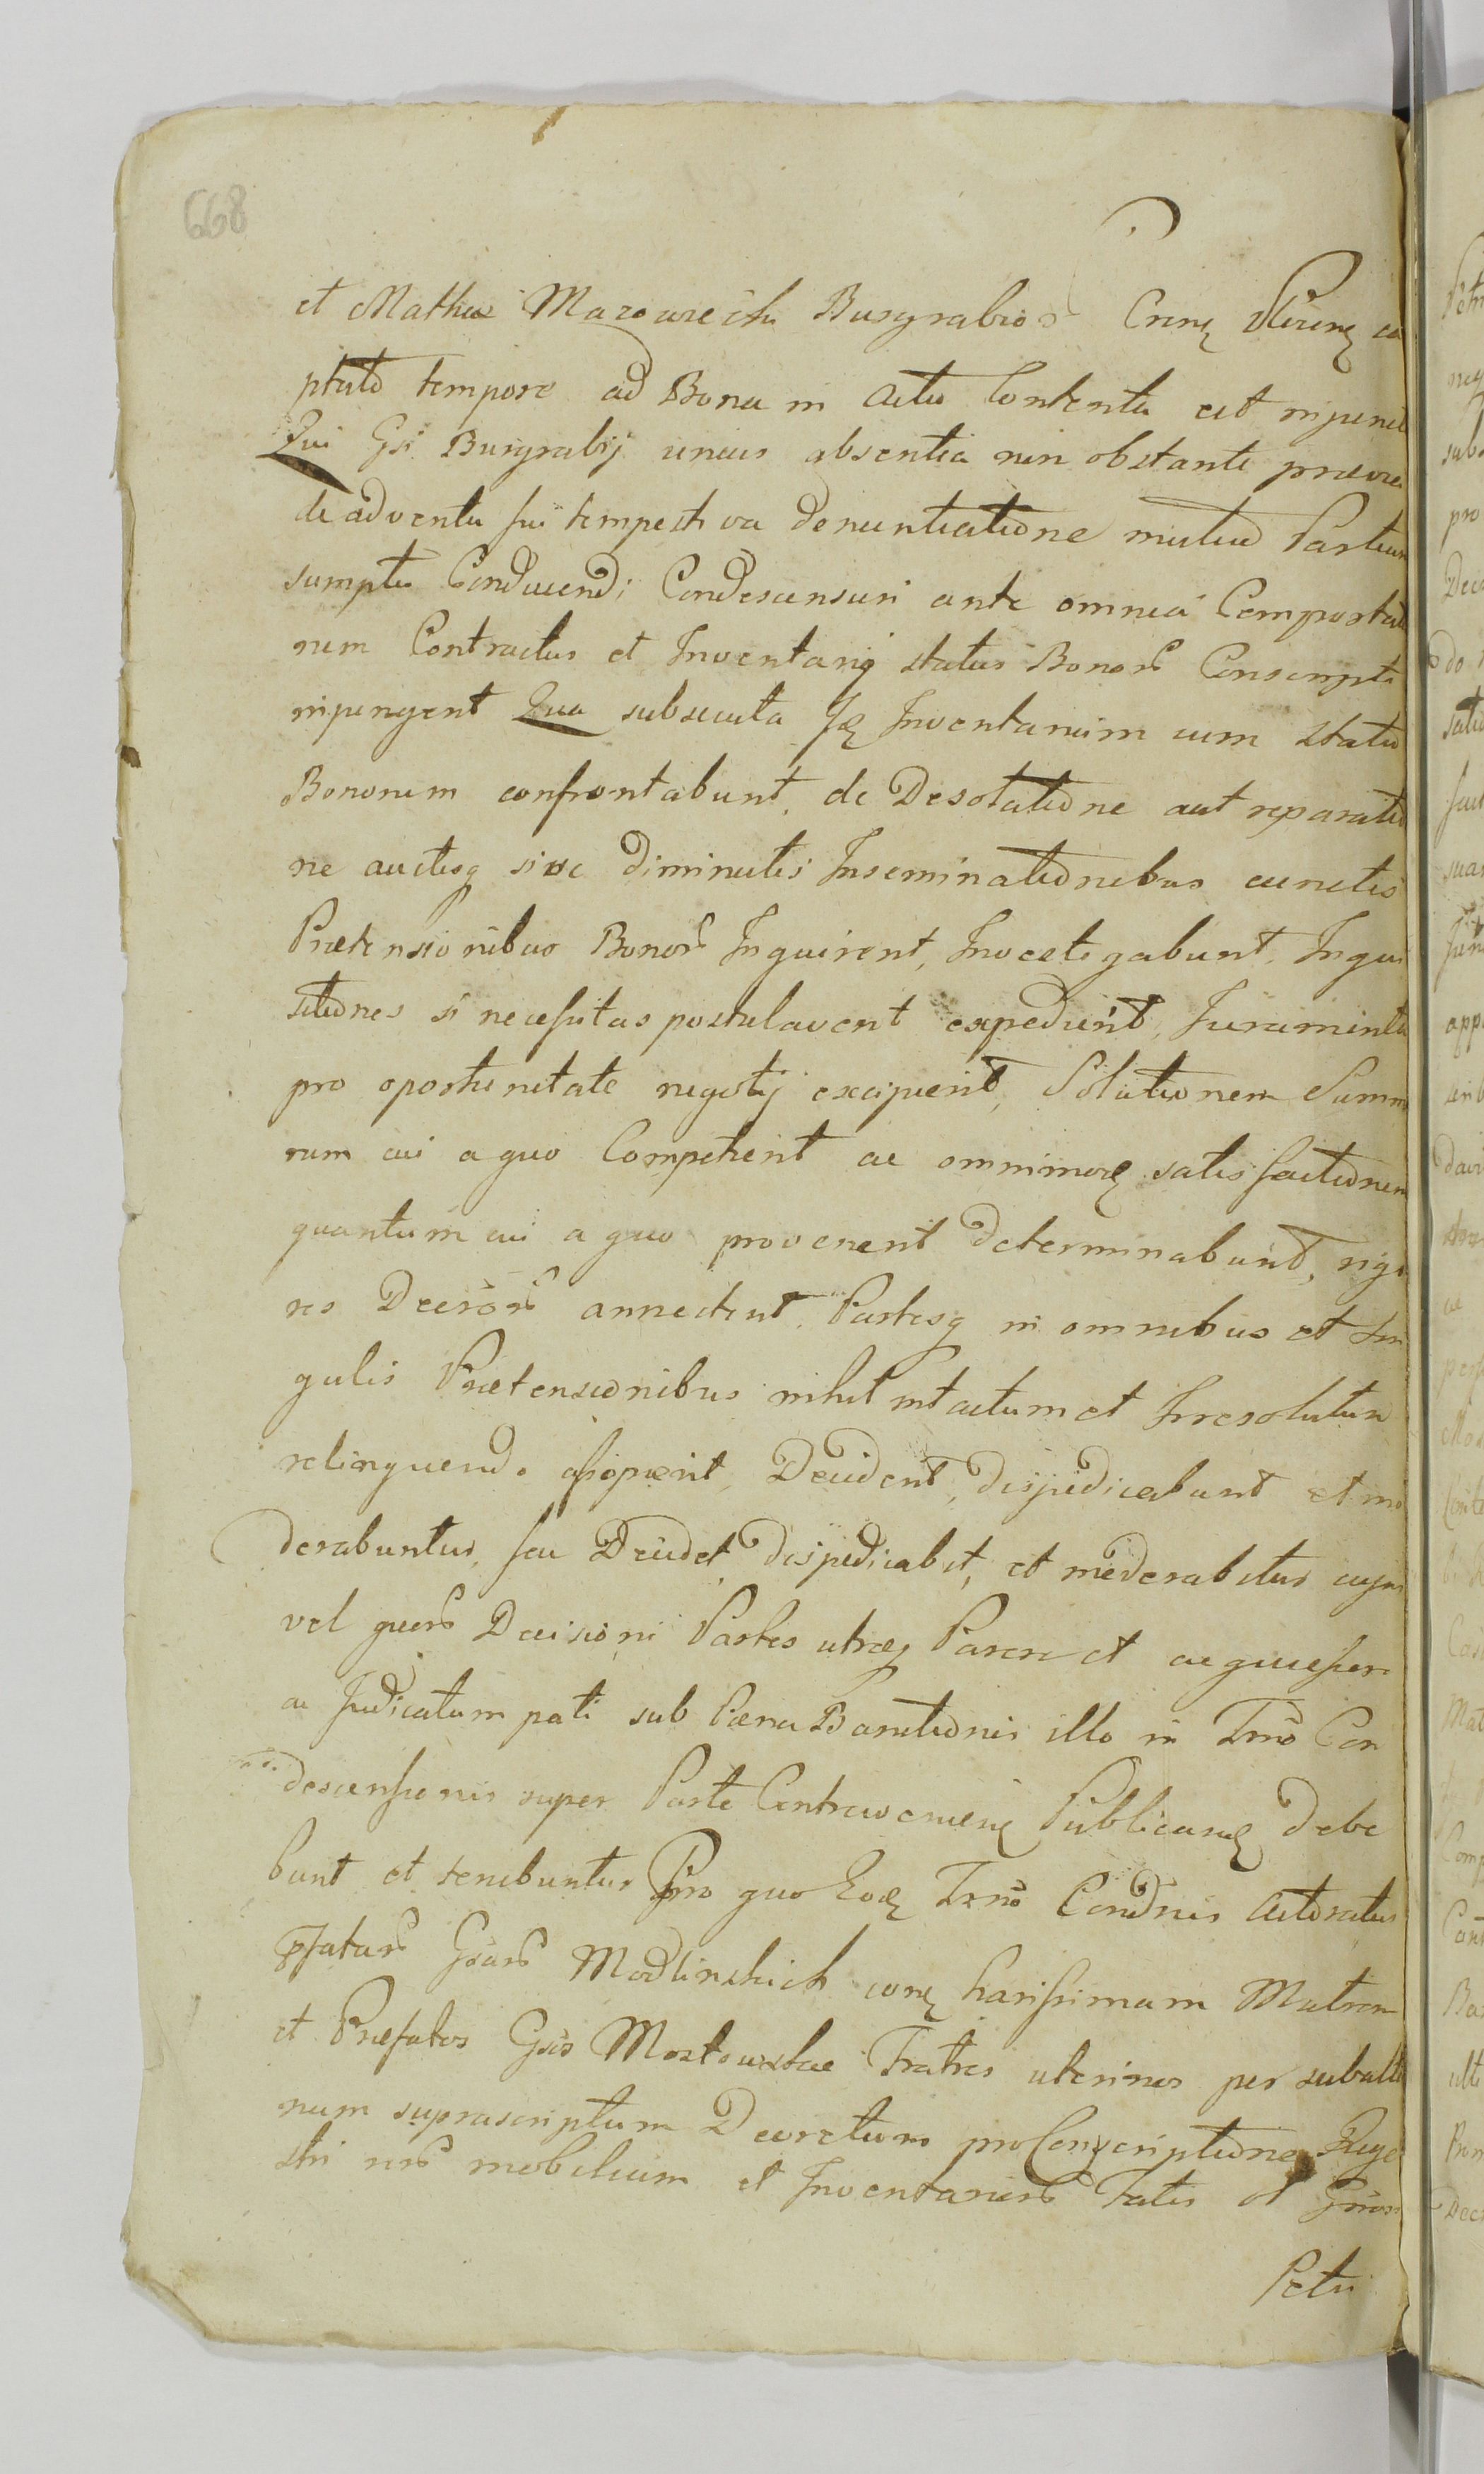 668
et Mathiæ Mazowiecki Burgrabios Crenę
ptato tempore ad Bona in Actu Contenta est
Qui Gsi Burgrabij unius absentia non obstante prævia
de adventu sui tempestiva denuntiatione mutuo Partium
sumptu Conducendi Condescensuri ante omnia Comportat
nem Contractus et Inventarij status Bonorũ Conscripti
injungent Qua subsecuta Inventarium cum statu
Bonorum confrontabunt, de Desolatione aut reparatio
ne auctisq sive diminutis Inseminationibus cunctis
Prætensionibus Bonorũ Inquirent, Investigabunt, Inqui
sitiones si necessitas postulaverit expedient, Juramenta
pro oportunitate negotij excipient, Solutionem Summa
rum cui a quo Competent ac omnimodę satisfactionem
quantum cui a quo provenerit determinabunt, rigo
res Decrorũ annectent Partesq in omnibus et sin
gulis Prætensionibus nihil intactum et Irresolutum
relinquendo assopient, Decident, dijudicabunt et mo
derabuntur, seu Decidet dijudicabit, et moderabitur cujus
vel quorũ Decisioni Partes utræq Parere et acquiescere
ac Judicatum pati sub Pæna Banitionis illo in Tmo Con
descensionis super Parte Contravenienę Publicandę debe
bunt et tenebuntur Pro quo Eodę Trno Condnis Actoratus
pfatarũ Gsarũ Modlinskich conę harissimam Matrem
et Præfatos Gsos Mostowskie Fratres uterinos per subalte
num suprascriptum Decretum pro Conscriptione Rege
stri rerũ mobilium et Inventariorũ Fatis et Gnros
Petri